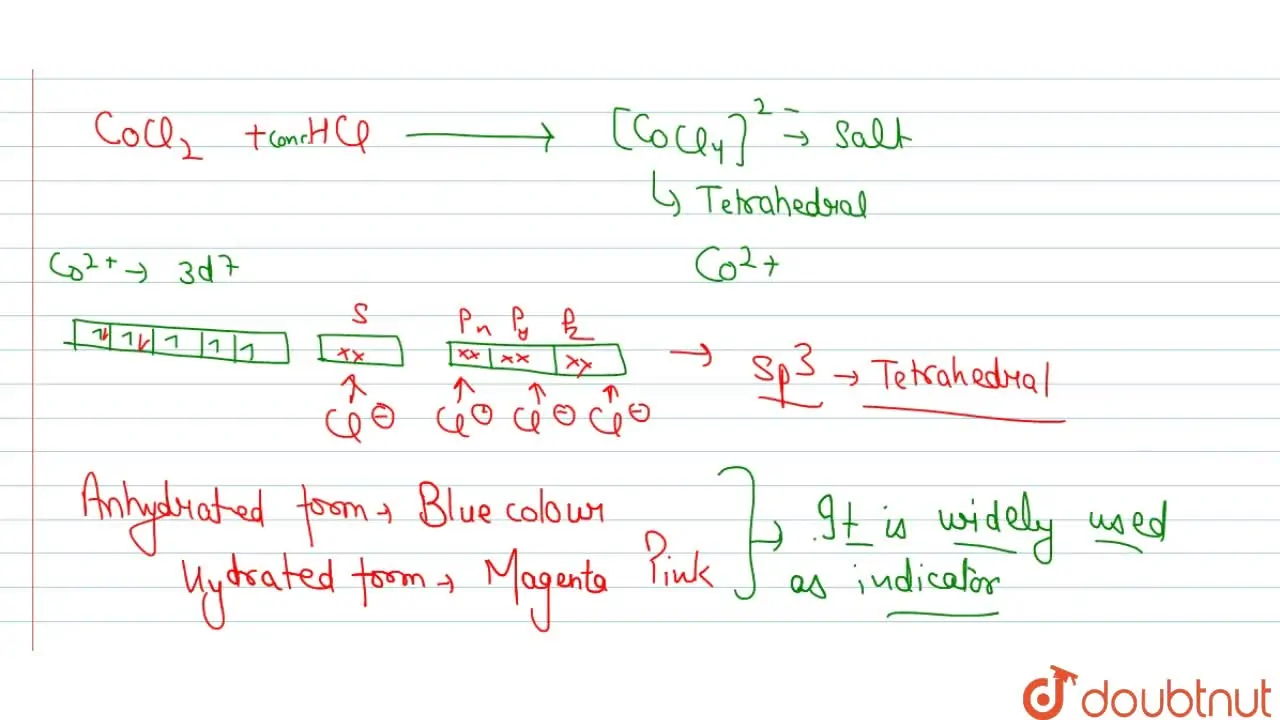 CoCl2 + conc. HCl → [CoCl4]2- → Salt
↳ Tetrahedral
Co2+ → 3d7
Co2+
S Px Py Pz
1↓ 1↓ 1 1 1 xx xx xx xx → Sp3 → Tetrahedral
Cl⊖ Cl⊖ Cl⊖ Cl⊖
Anhydrated form → Blue colour
Hydrated form → Magenta Pink
→ It is widely used
as indicator
doubtnut